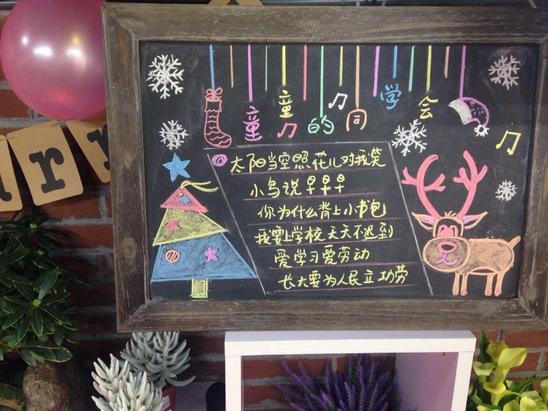 童童的同学会
太阳当空照花儿对我笑
小鸟说早早早
你为什么背上小书包
我要上学校天天不迟到
爱学习爱劳动
长大要为人民立功劳
rr